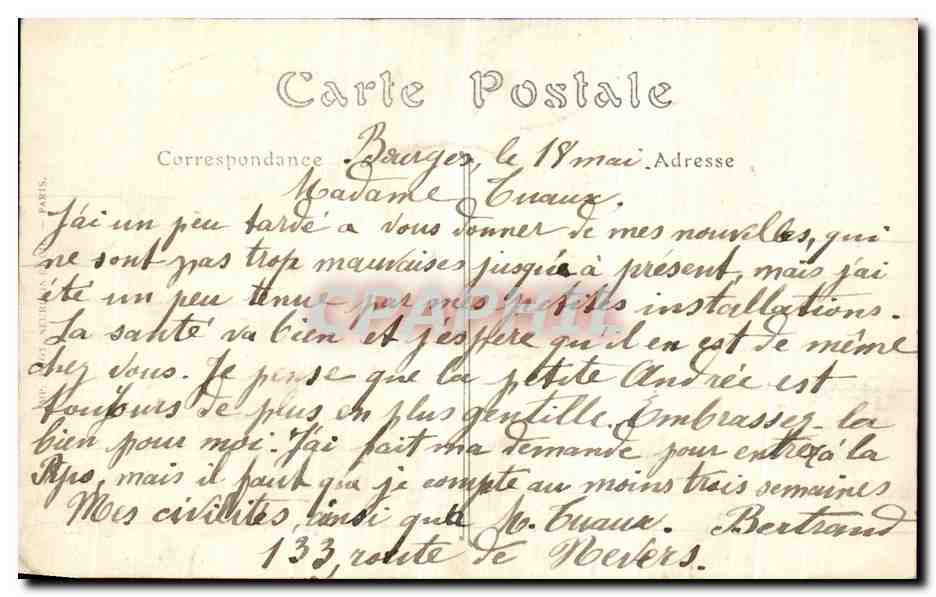 Carte Postale
Correspondance Adresse
Bourges, le 18 mai
Madame Tuaux.
J'ai un peu tardé a vous donner de mes nouvelles, qui
ne sont pas trop mauvaises jusquà à présent, mais j'ai
été un peu tenue par mes petites installations.
La santé va bien et j'espère qu'il en est de même
chez vous. Je pense que la petite Andrée est
toujours de plus en plus gentille. Embrassez-la
bien pour moi. J'ai fait ma demande pour entrer à la
mais il faut que je compte au moins trois semaines
Mes civilités, ainsi qu'à M. Tuaux. Bertrand
133, route de Nevers.
NEURDEIN
PARIS.
CPAPHIL